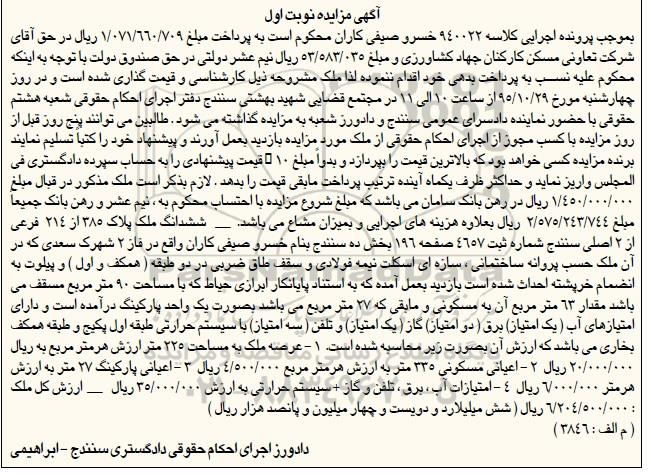 آگهی مزایده نوبت اول
بموجب پرونده اجرایی کلاسه ۹۴۰۰۲۲ خسرو صیفی کاران محکوم است به پرداخت مبلغ ۱/۰۷۱/۶۶۰/۷۰۹ ریال در حق آقای
شرکت تعاونی مسکن کارکنان جهاد کشاورزی و مبلغ ۵۳/۵۸۳/۰۳۵ ریال نیم عشر دولتی در حق صندوق دولت با توجه به اینکه
محکوم علیه نسبت به پرداخت بدهی خود اقدام ننموده لذا ملک مشروحه ذیل کارشناسی و قیمت گذاری شده است و در روز
چهارشنبه مورخ ۹۵/۱۰/۲۹ از ساعت ۱۰ الی ۱۱ در مجتمع قضایی شهید بهشتی سنندج دفتر اجرای احکام حقوقی شعبه هشتم
حقوقی با حضور نماینده دادسرای عمومی سنندج و دادورز شعبه به مزایده گذاشته می شود . طالبین می توانند پنج روز قبل از
روز مزایده با کسب مجوز از اجرای احکام حقوقی از ملک مورد مزایده بازدید بعمل آورند و پیشنهاد خود را کتباً تسلیم نمایند
برنده مزایده کسی خواهد بود که بالاترین قیمت را بپردازد و بدواً مبلغ ۱۰ قیمت پیشنهادی را به حساب سپرده دادگستری فی
المجلس واریز نماید و حداکثر ظرف یکماه آینده ترتیب پرداخت مابقی قیمت را بدهد . لازم بذکر است ملک مذکور در قبال مبلغ
۱/۴۵۰/۰۰۰/۰۰۰ ریال در رهن بانک سامان می باشد که مبلغ شروع مزایده با احتساب محکوم به ، نیم عشر و رهن بانک جمیعاً
مبلغ ۲/۵۷۵/۲۴۳/۷۴۴ ریال بعلاوه هزینه های اجرایی و بمیزان مشاع می باشد. __ ششدانگ ملک پلاک ۳۸۵ از ۲۱۴ فرعی
از ۲ اصلی سنندج شماره ثبت ۴۶۵۷ صفحه ۱۹۶ بخش ده سنندج بنام خسرو صیفی کاران واقع در فاز ۲ شهرک سعدی که در
آن ملک حسب پروانه ساختمانی ، سازه ای اسکلت نیمه فولادی و سقف طاق ضربی در دو طبقه ( همکف و اول ) و پیلوت به
انضمام خرپشته احداث شده است بازدید بعمل آمده که به استناد پایانکار ابرازی حیاط که با مساحت ۹۰ متر مربع مسقف می
باشد مقدار ۶۳ متر مربع آن به مسکونی و مابقی که ۲۷ متر مربع می باشد بصورت یک واحد پارکینگ درآمده است و دارای
امتیازهای آب ( یک امتیاز) برق ( دو امتیاز) گاز ( یک امتیاز) و تلفن ( سه امتیاز) با سیستم حرارتی طبقه اول پکیج و طبقه همکف
بخاری می باشد که ارزش آن بصورت زیر محاسبه شده است. ۱ - عرصه ملک به مساحت ۲۲۵ متر ارزش هرمتر مربع به ریال
۲۰/۰۰۰/۰۰۰ ریال ۲ - اعیانی مسکونی ۳۳۵ متر به ارزش هرمتر مربع ۴/۵۰۰/۰۰۰ ریال ۳ - اعیانی پارکینگ ۲۷ متر به ارزش
هرمتر ۶/۰۰۰/۰۰۰ ریال ۴ - امتیازات آب ، برق ، تلفن و گاز + سیستم حرارتی به ارزش ۳۵/۰۰۰/۰۰۰ ریال __ ارزش کل ملک
: ۶/۲۰۴/۵۰۰/۰۰۰ ریال ( شش میلیلارد و دویست و چهار میلیون و پانصد هزار ریال )
( م الف : ۳۸۴۶ )
دادورز اجرای احکام حقوقی دادگستری سنندج - ابراهیمی